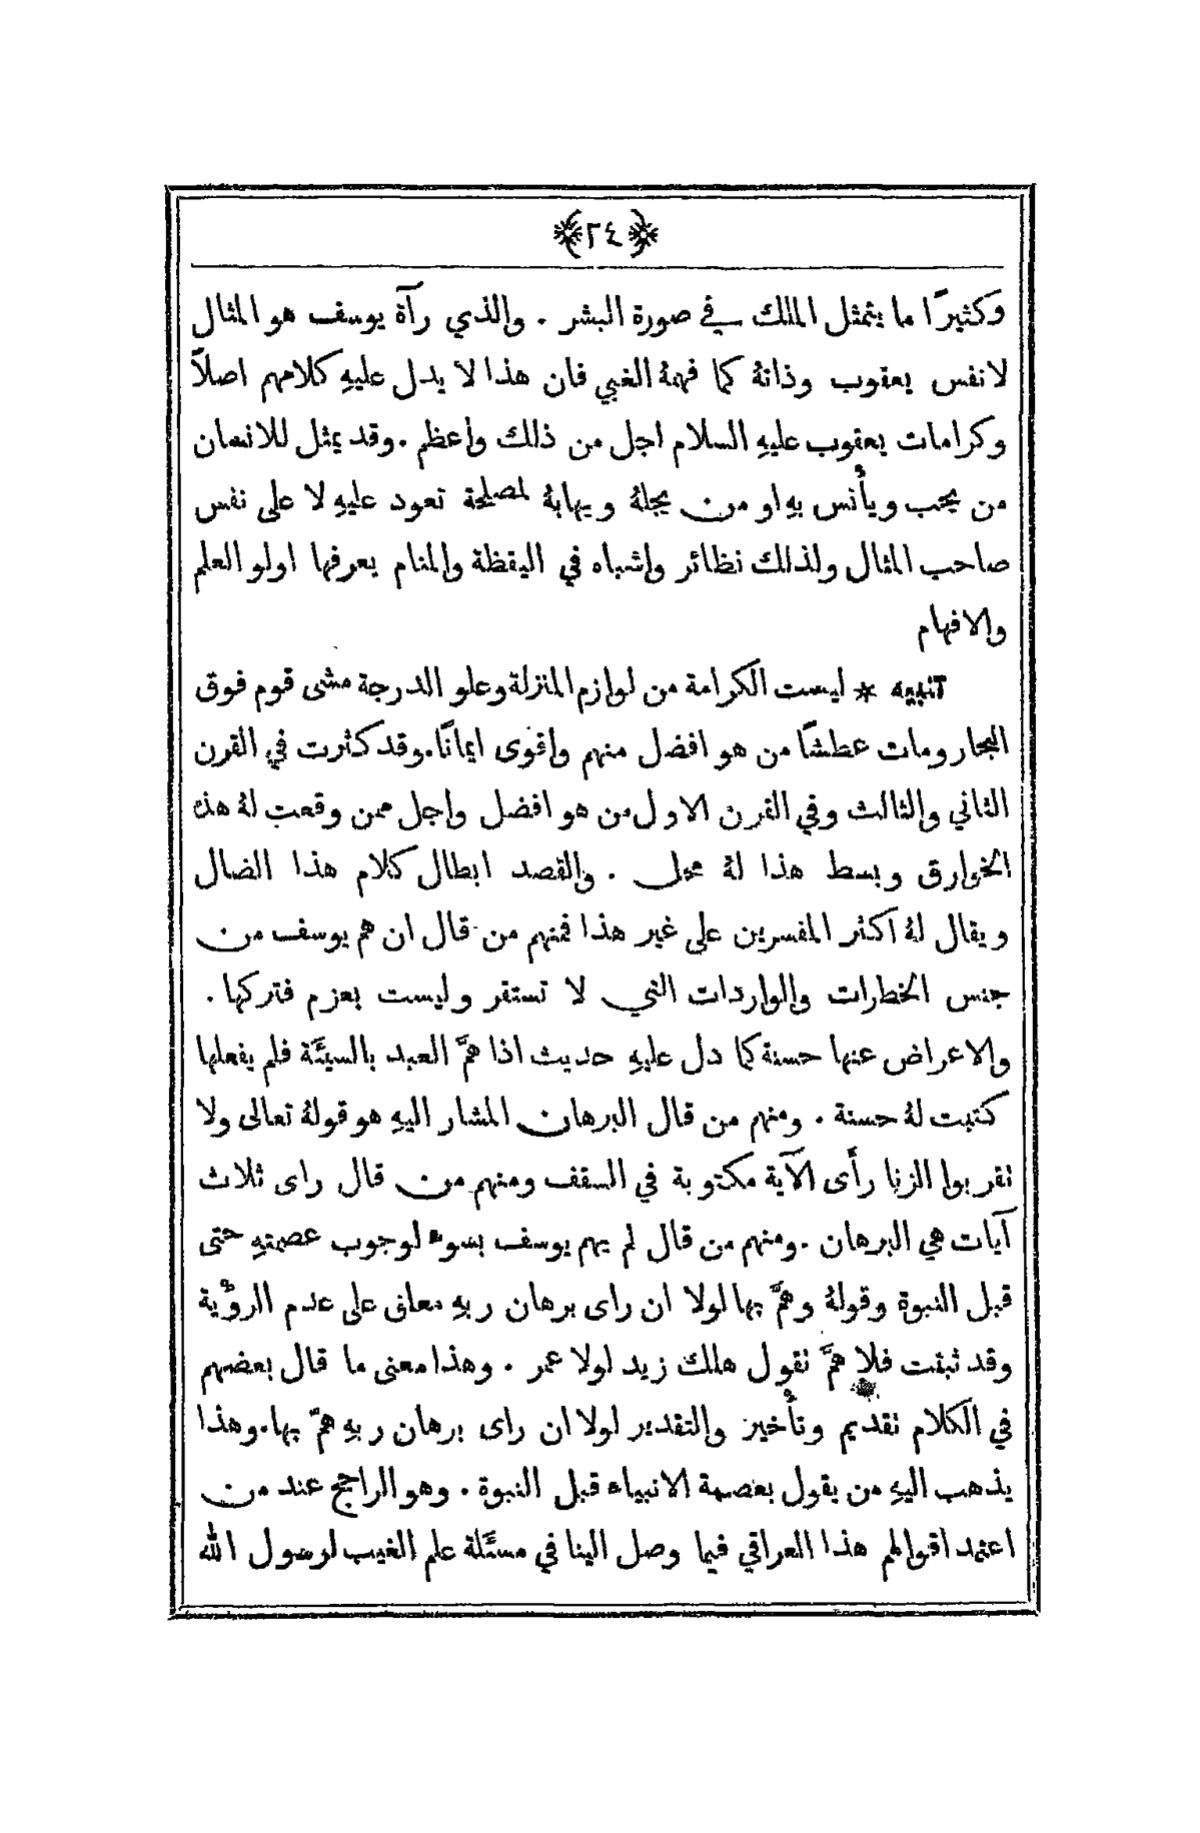 ﴿٢٤﴾
وكثيرًا ما يتمثل الملك في صورة البشر . والذي رآهُ يوسف هو المثال
لا نفس يعقوب وذاتهُ كما فهمهُ الغبي فان هذا لا يدل عليهِ كلامهم اصلاً
وكرامات يعقوب عليهِ السلام اجل من ذلك واعظم . وقد يمثل للانسان
من يحب ويأنس بهِ او من يجلهُ ويهابهُ لمصلحة تعود عليهِ لا على نفس
صاحب المثال ولذلك نظائر واشباه في اليقظة والمنام يعرفها اولو العلم
والافهام
تنبيه * ليست الكرامة من لوازم المنزلة وعلو الدرجة مشى قوم فوق
البحار ومات عطشًا من هو افضل منهم واقوى ايمانًا . وقد كثرت في القرن
الثاني والثالث وفي القرن الاول من هو افضل واجل ممن وقعت لهُ هذه
الخوارق وبسط هذا لهُ محل . والقصد ابطال كلام هذا الضال
ويقال لهُ اكثر المفسرين على غير هذا فمنهم من قال ان هم يوسف من
جنس الخطرات والواردات التي لا تستقر وليست بعزم فتركها .
والاعراض عنها حسنة كما دل عليهِ حديث اذا همَّ العبد بالسيئَة فلم يفعلها
كتبت لهُ حسنة . ومنهم من قال البرهان المشار اليهِ هو قولهُ تعالى ولا
تقربوا الزنا رأَى الآية مكتوبة في السقف ومنهم من قال راى ثلاث
آيات هي البرهان . ومنهم من قال لم يهم يوسف بسوء لوجوب عصمتهِ حتى
قبل النبوة وقولهُ وهمَّ بها لولا ان راى برهان ربهِ معلق على عدم الرؤْية
وقد ثبتت فلا همَّ تقول هلك زيد لولا عمر . وهذا معنى ما قال بعضهم
في الكلام تقديم وتأْخير والتقدير لولا ان راى برهان ربهِ همَّ بها . وهذا
يذهب اليهِ من يقول بعصمة الانبياء قبل النبوة . وهو الراجح عند من
اعتمد اقوالهم هذا العراقي فيما وصل الينا في مسئَلة علم الغيب لرسول الله